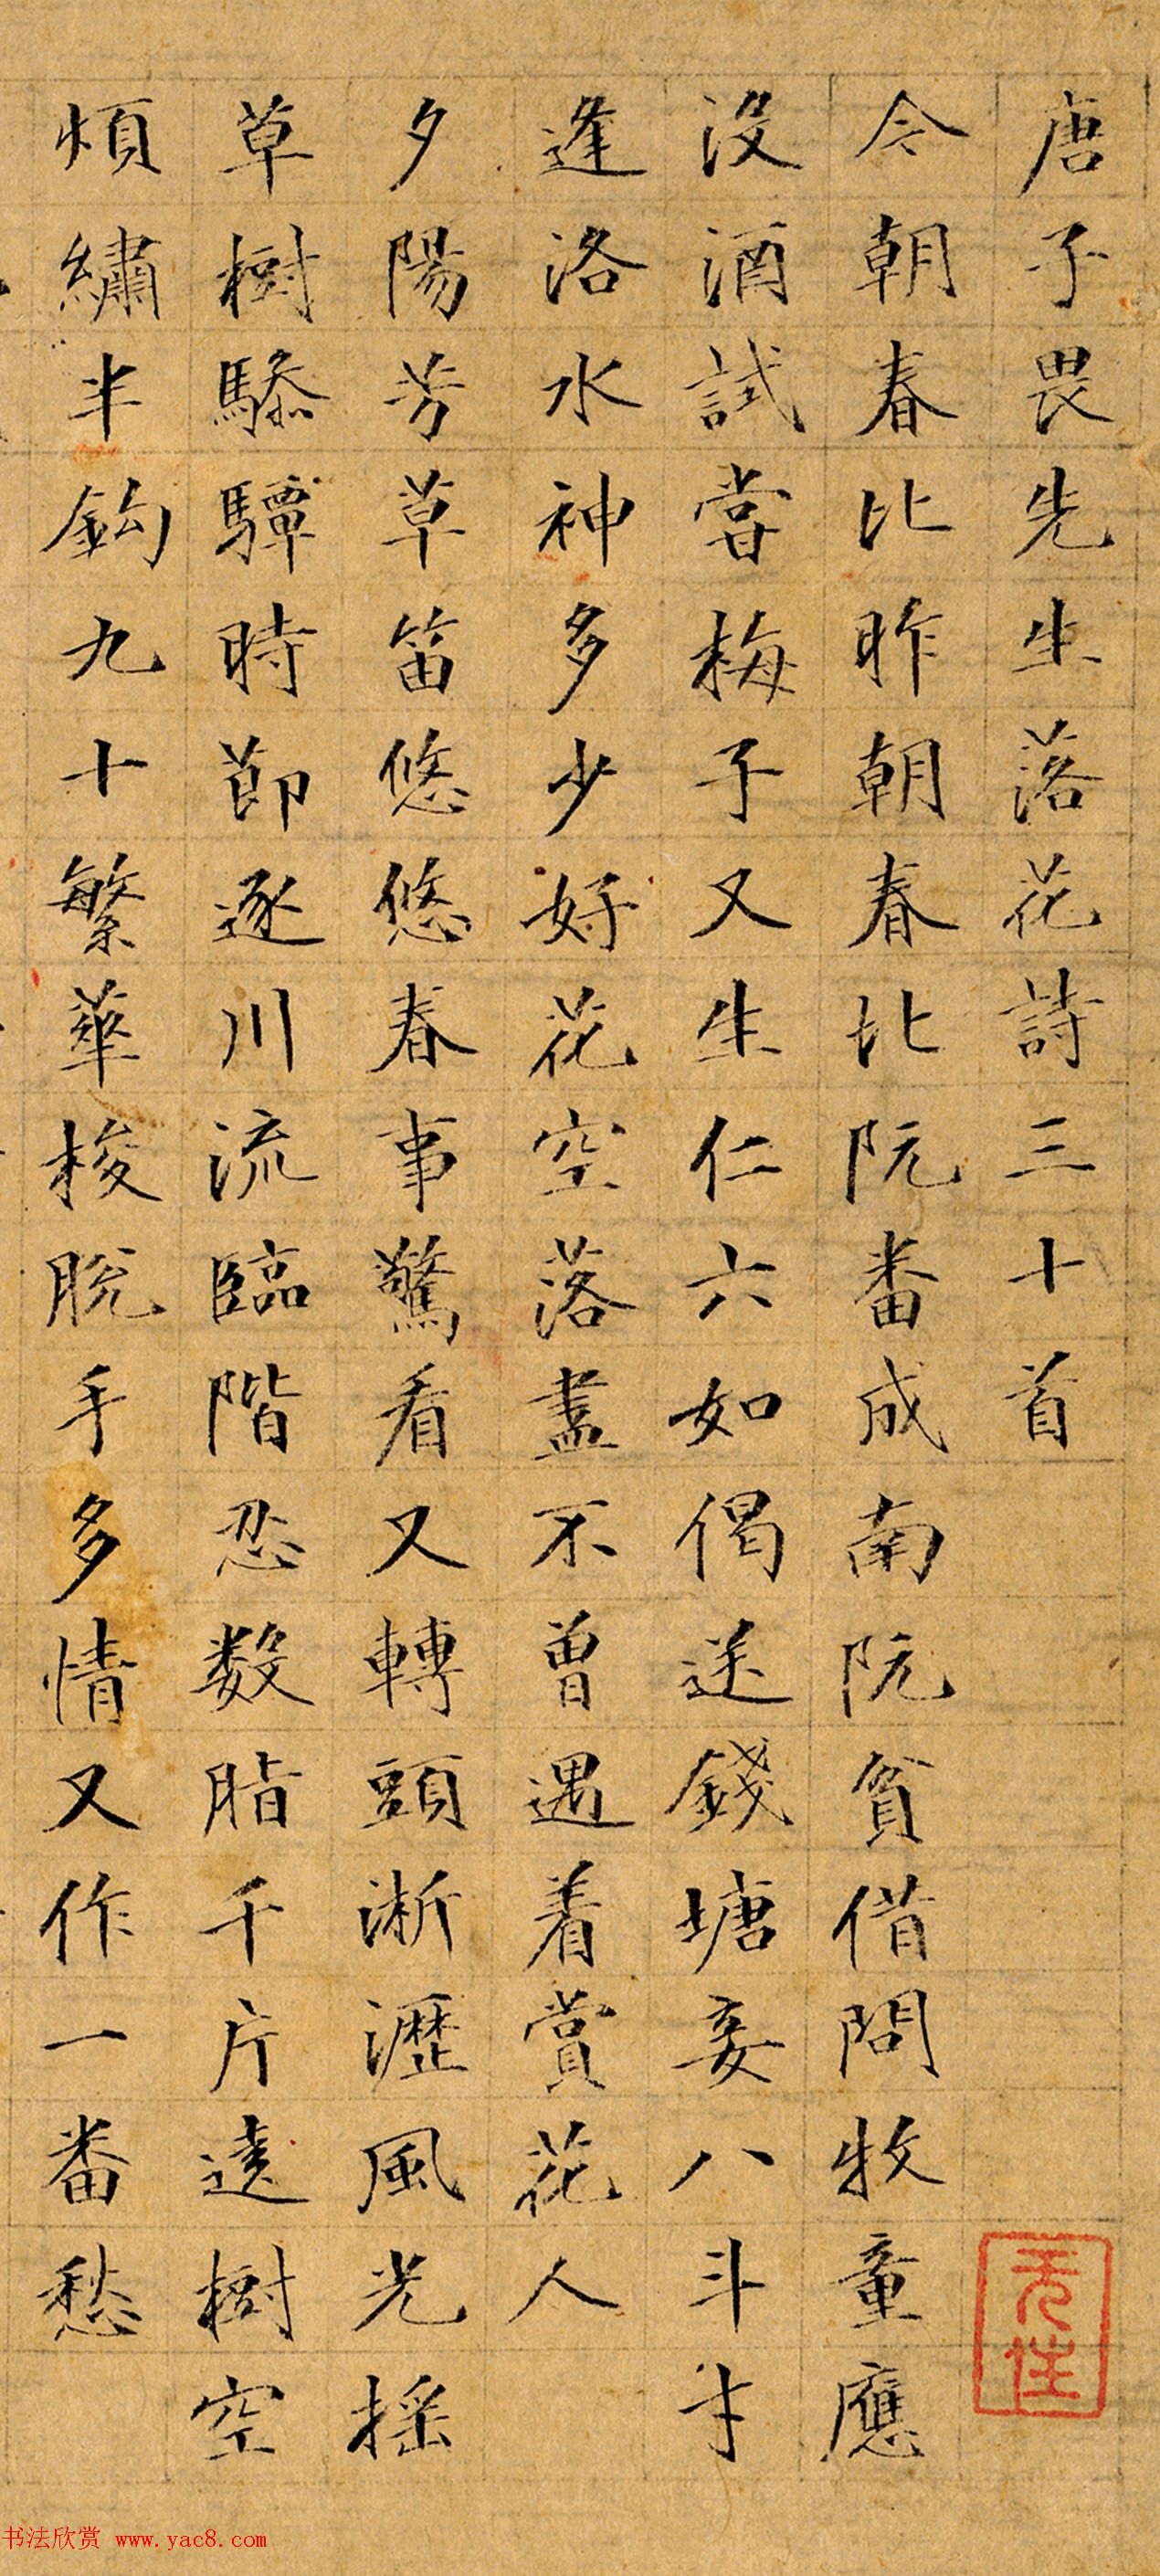 唐子畏先生落花詩三十首
今朝春比昨朝春北阮番成南阮貧借問牧童應
没酒試甞梅子又生仁六如偈送錢塘妾八斗才
逢洛水神多少好花空落盡不曾遇着賞花人
夕陽芳草笛悠悠春事驚看又轉頭淅瀝風光搖
草樹驂驔時節逐川流臨階忍数脂千片遶樹空
煩繡半鈎九十繁華梭脱手多情又作一番愁
无住
书法欣赏 www.yac8.com